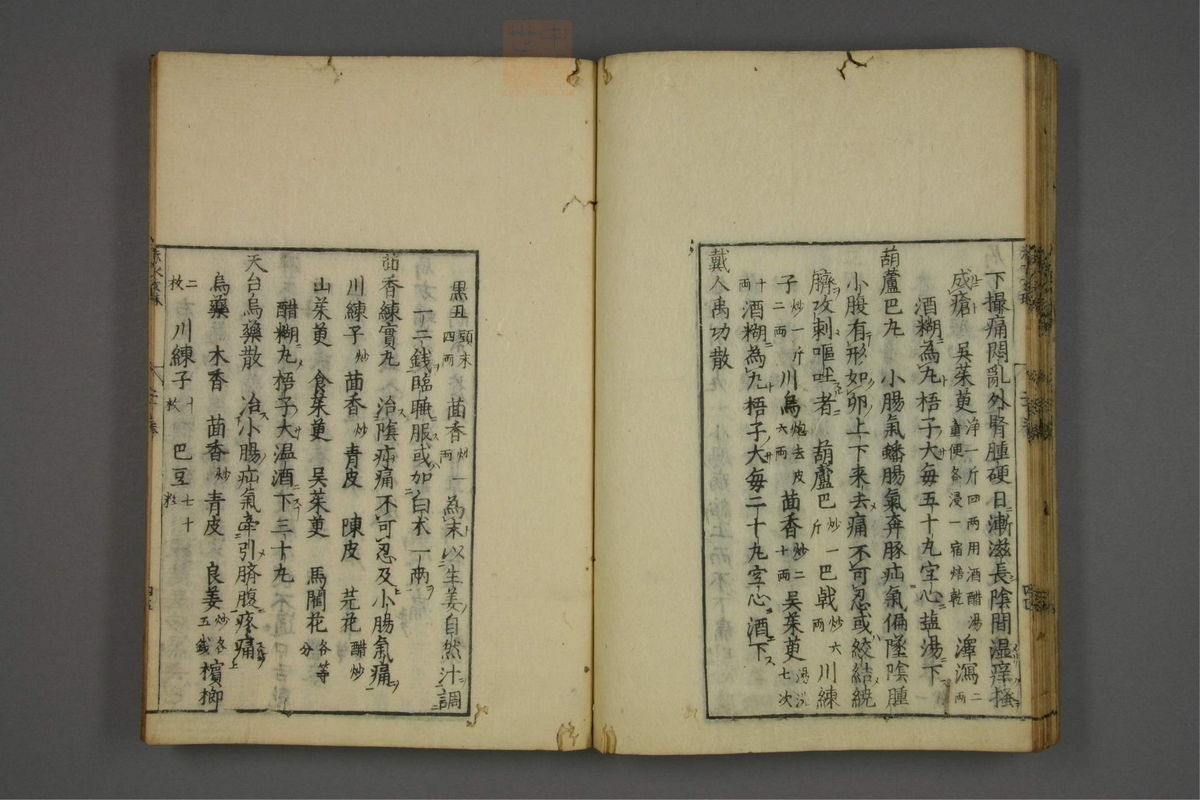 下撮痛悶亂外腎腫硬日漸滋長陰間湿痒搔
成瘡　吳茱萸浄一斤四兩用酒醋湯童便各浸一宿焙乾　澤瀉二兩
酒糊為丸梧子大每五十丸空心塩湯下
葫蘆巴丸　小腸氣蟠腸氣奔豚疝氣偏墜陰腫
小腹有形如卵上下来去痛不可忍或絞結繞
臍攻刺嘔吐者　葫蘆巴炒一斤　巴戟炒六兩　川練
子炒一斤二兩　川烏炮去皮六兩　茴香炒二十兩　吳茱萸湯洗七次
十兩　酒糊為丸梧子大每二十丸空心酒下
戴人禹功散
黒丑頭末四兩　茴香炒一兩　為末以生姜自然汁調
一二錢臨睡服或加白木一兩
茴香練實丸　治陰疝痛不可忍及小腸氣痛
川練子炒　茴香炒　青皮　陳皮　芫花醋炒
山茱萸　食茱萸　吳茱萸　馬藺花各等分
醋糊丸梧子大温酒下三十丸
天台烏藥散　治小腸疝氣牽引臍腹疼痛
烏藥　木香　茴香炒　青皮　良姜炒各五錢　檳榔
二枚　川練子十枚　巴豆七十粒